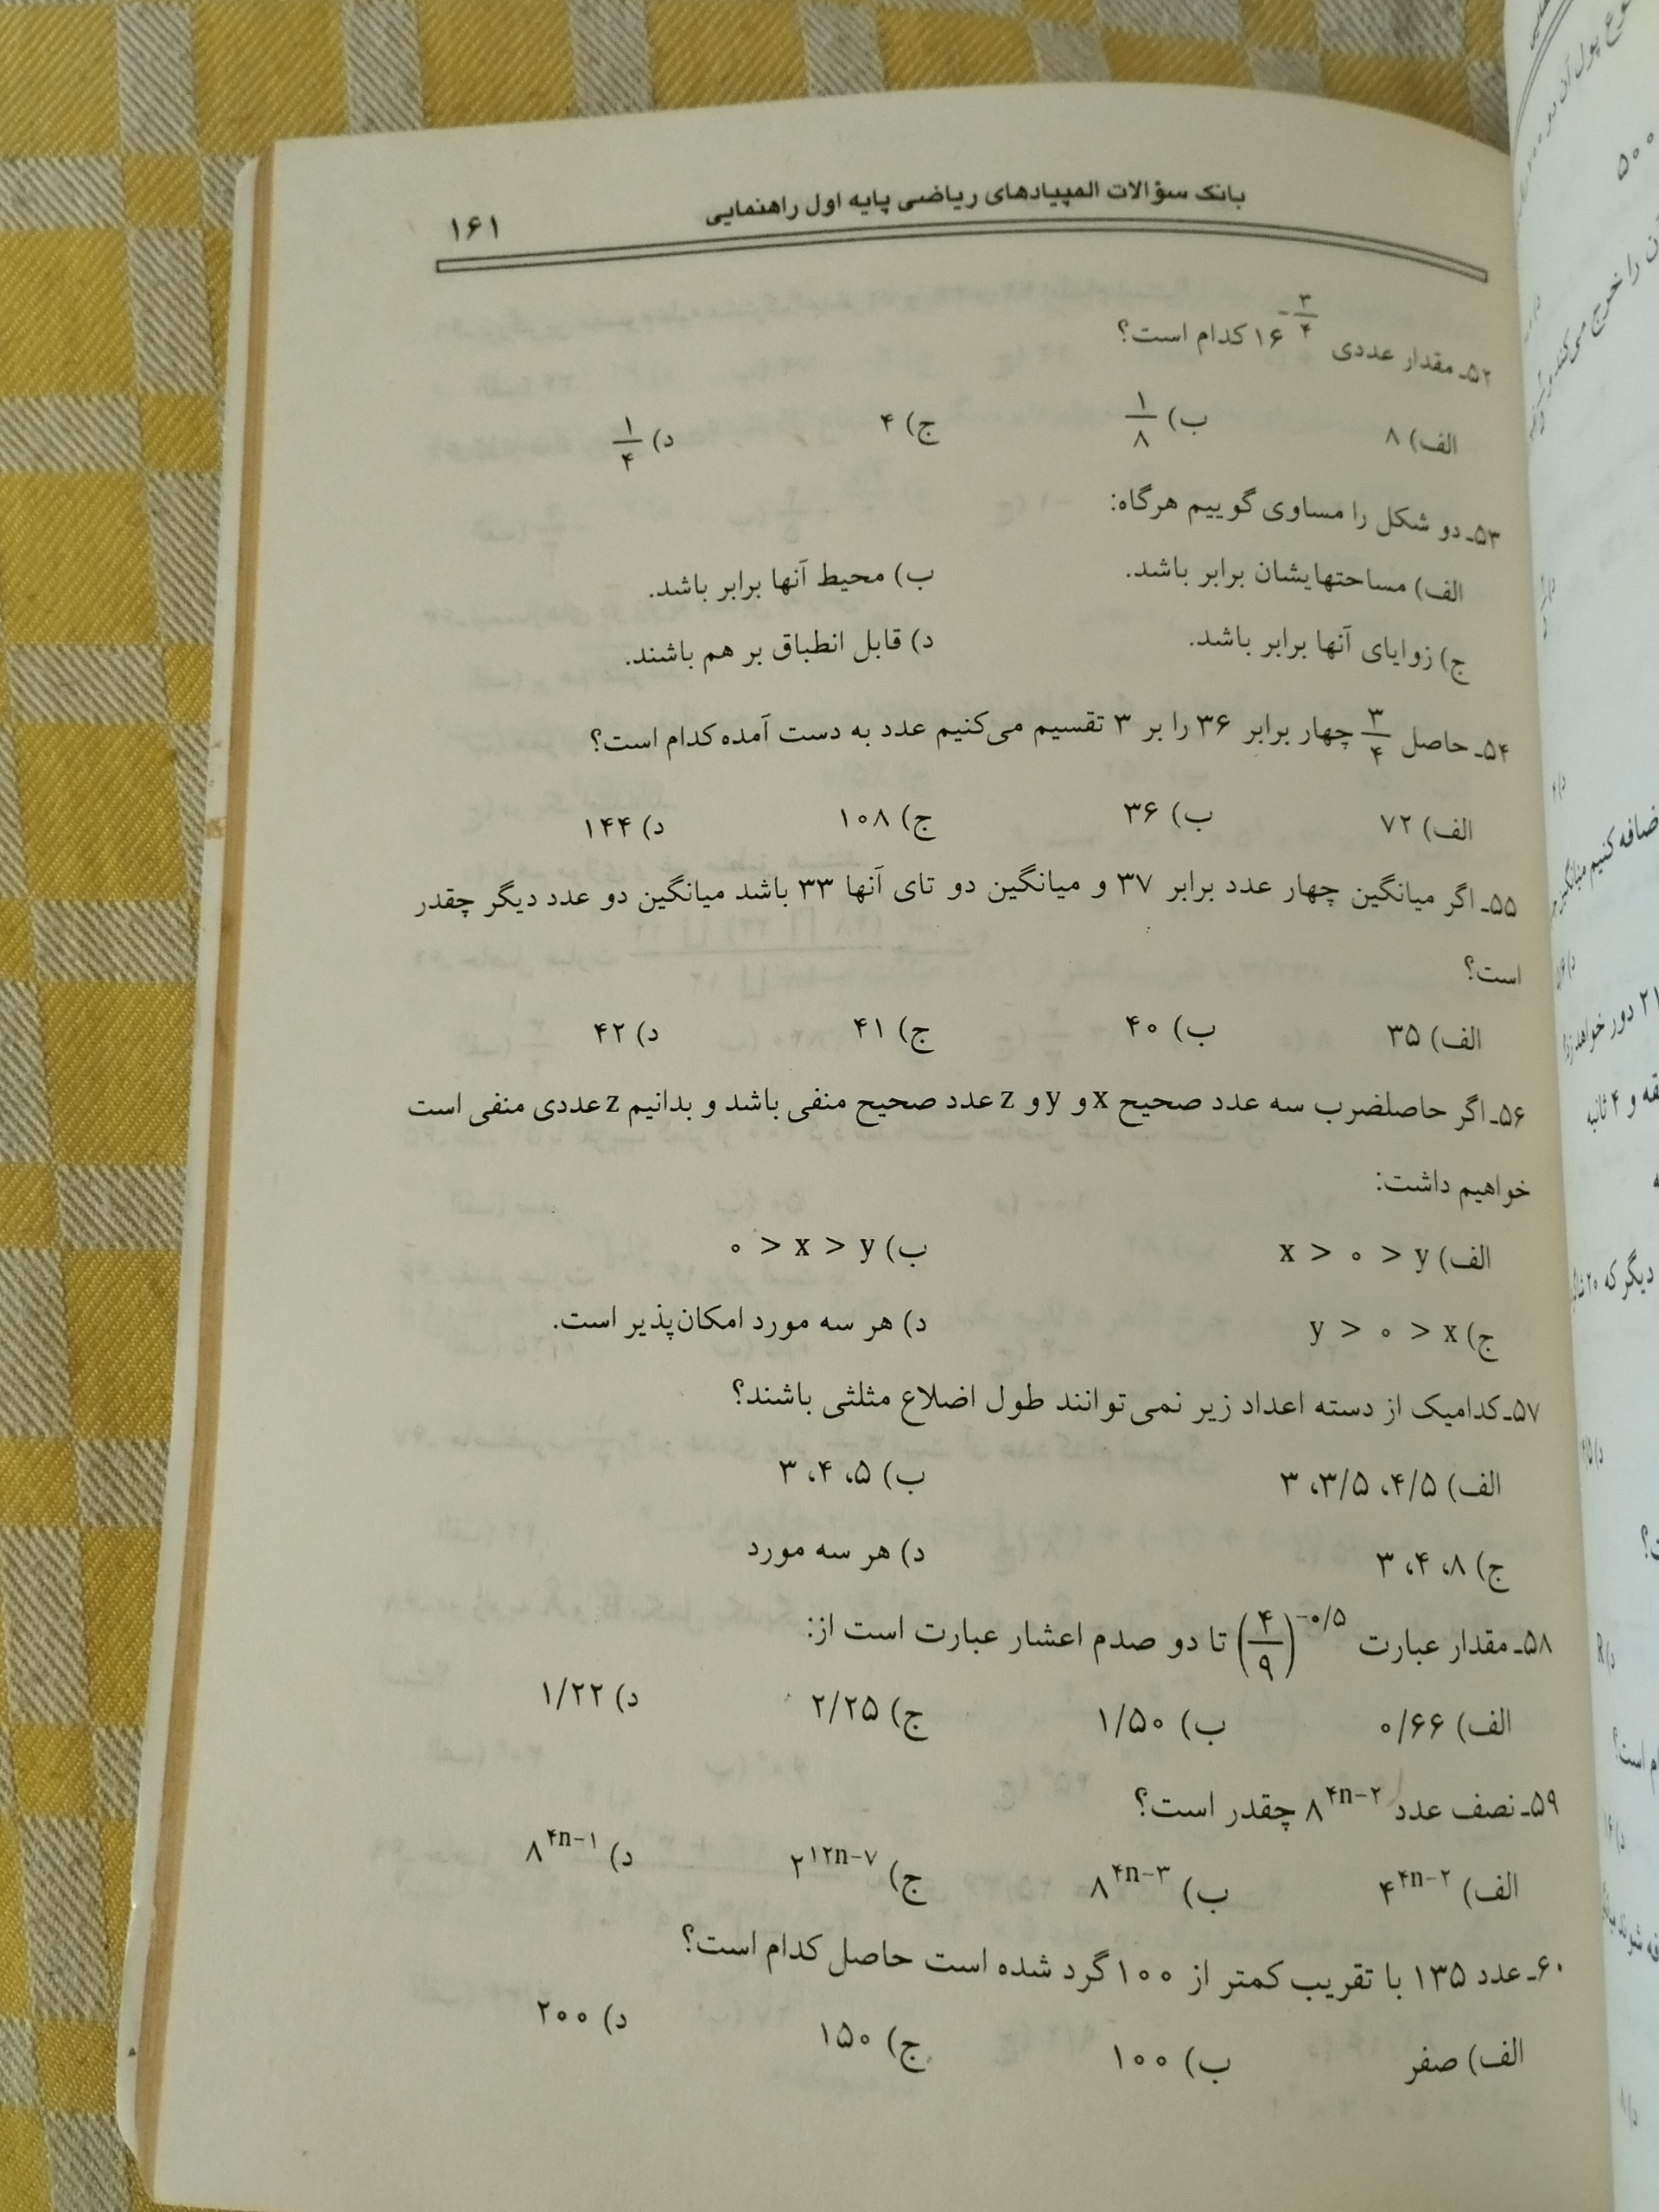 بانک سؤالات المپیادهای ریاضی پایه اول راهنمایی ۱۶۱
۵۲ـ مقدار عددی ۱۶^(-۳/۴) کدام است؟
الف) ۸ ب) ۱/۸ ج) ۴ د) ۱/۴
۵۳ـ دو شکل را مساوی گوییم هرگاه:
الف) مساحتهایشان برابر باشد. ب) محیط آنها برابر باشد.
ج) زوایای آنها برابر باشد. د) قابل انطباق بر هم باشند.
۵۴ـ حاصل ۳/۴ چهار برابر ۳۶ را بر ۳ تقسیم می‌کنیم عدد به دست آمده کدام است؟
الف) ۷۲ ب) ۳۶ ج) ۱۰۸ د) ۱۴۴
۵۵ـ اگر میانگین چهار عدد برابر ۳۷ و میانگین دو تای آنها ۳۳ باشد میانگین دو عدد دیگر چقدر
است؟
الف) ۳۵ ب) ۴۰ ج) ۴۱ د) ۴۲
۵۶ـ اگر حاصلضرب سه عدد صحیح x و y و z عدد صحیح منفی باشد و بدانیم z عددی منفی است
خواهیم داشت:
الف) x > ۰ > y ب) ۰ > x > y
ج) y > ۰ > x د) هر سه مورد امکان‌پذیر است.
۵۷ـ کدامیک از دسته اعداد زیر نمی‌توانند طول اضلاع مثلثی باشند؟
الف) ۴/۵، ۳/۵، ۳ ب) ۵، ۴، ۳
ج) ۸، ۴، ۳ د) هر سه مورد
۵۸ـ مقدار عبارت (۴/۹)^(-۰/۵) تا دو صدم اعشار عبارت است از:
الف) ۰/۶۶ ب) ۱/۵۰ ج) ۲/۲۵ د) ۱/۲۲
۵۹ـ نصف عدد ۸^(۴n-۲) چقدر است؟
الف) ۴^(۴n-۲) ب) ۸^(۴n-۳) ج) ۲^(۱۲n-۷) د) ۸^(۴n-۱)
۶۰ـ عدد ۱۳۵ با تقریب کمتر از ۱۰۰ گرد شده است حاصل کدام است؟
الف) صفر ب) ۱۰۰ ج) ۱۵۰ د) ۲۰۰